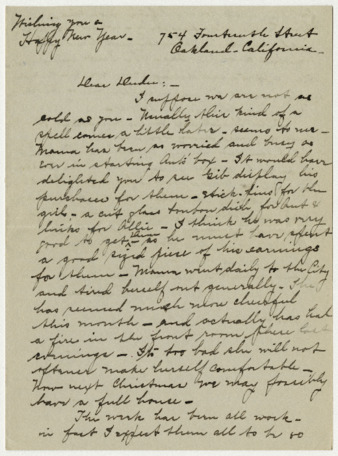 Wishing you a
Happy New Year -
754 Fourteenth Street
Oakland - California -
Dear Dudu: -
I suppose we are not as
cold as you - Usually this kind of a
spell comes a little later - seems to me -
Mama has been as worried and busy as
ever in starting Aunt's box - It would have
delighted you to see Gib display his
purchases for them - stick-pins for the
girls - a cut glass bonbon dish for Aunt &
links for Allie - I think he was very
good to get them as he must have spent
a good sized piece of his earnings
for them - Mama went daily to the City
and tired herself out generally - She
has seemed much more cheerful
this month - and actually has had
a fire in the front room these last
evenings - It's too bad she will not
oftener make herself comfortable -
Now next Christmas we may possibly
have a full house -
This week has been all work -
in fact I expect them all to be so